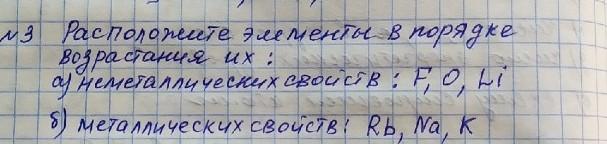 №3 Расположите элементы в порядке
возрастания их:
а) неметаллических свойств: F, O, Li
б) металлических свойств: Rb, Na, K